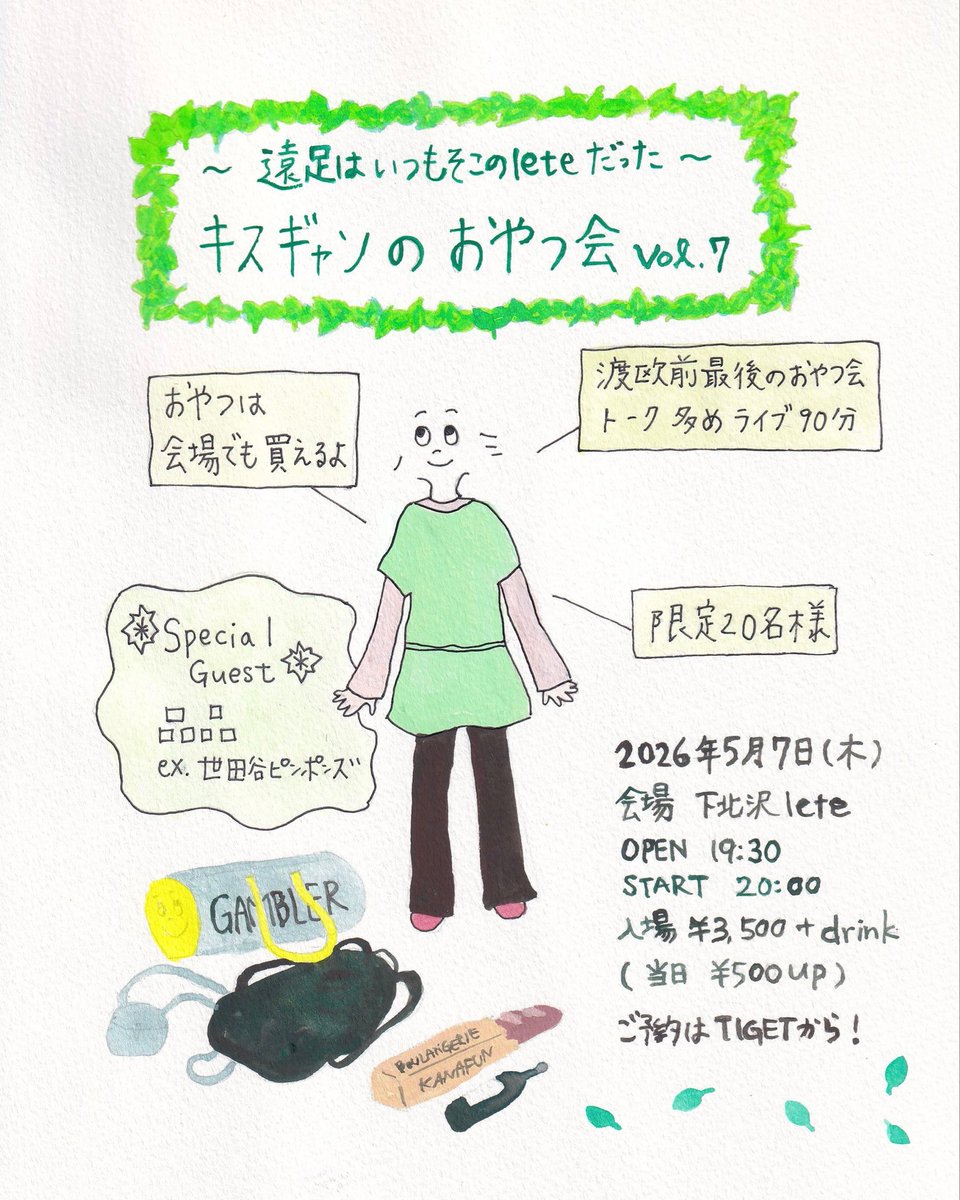 ～ 遠足はいつもそこのleteだった ～
キスギャソの おやつ会 vol.7
おやつは
会場でも買えるよ
渡欧前最後のおやつ会
トーク多め ライブ90分
Special
Guest
□ □
□□□□
ex. 世田谷ピンポンズ
限定20名様
2026年5月7日(木)
会場 下北沢lete
OPEN 19:30
START 20:00
入場 ¥3,500 + drink
(当日 ¥500up)
ご予約はTIGETから!
GAMBLER
BOULANGERIE
KANAFUN